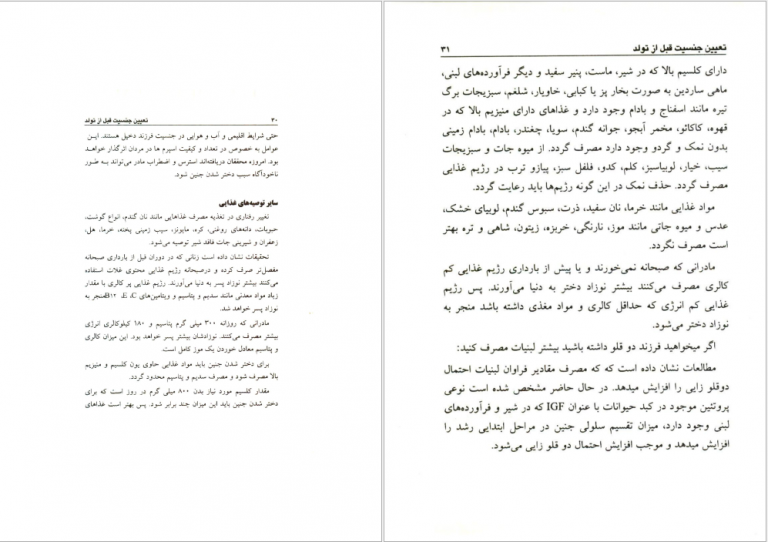 ۳۰ تعیین جنسیت قبل از تولد
حتی شرایط اقلیمی و آب و هوایی در جنسیت فرزند دخیل هستند. ایـن
عوامل به خصوص در تعداد و کیفیت اسپرم ها در مردان اثرگذار خواهـد
بود. امروزه محققان دریافته‌اند استرس و اضطراب مادر می‌تواند بـه طـور
ناخودآگاه سبب دختر شدن جنین شود.
سایر توصیه‌های غذایی
تغییر رفتاری در تغذیه مصرف غذاهایی مانند نان گندم، انواع گوشت،
حبوبات، دانه‌های روغنی، کره، مایونز، سیب زمینی پخته، خرما، هل،
زعفران و شیرینی جات فاقد شیر توصیه می‌شود.
تحقیقات نشان داده است زنانی که در دوران قبل از بارداری صبحانه
مفصل‌تر صرف کرده و درصبحانه رژیم غذایی محتوی غلات استفاده
می‌کنند بیشتر نوزاد پسر به دنیا می‌آورند. رژیم غذایی پر کالری با مقدار
زیاد مواد معدنی مانند سدیم و پتاسیم و ویتامین‌های E ،C، B12منجر به
نوزاد پسر خواهد شد.
مادرانی که روزانه ۳۰۰ میلی گرم پتاسیم و ۱۸۰ کیلوکالری انرژی
بیشتر مصرف می‌کنند. نوزادشان بیشتر پسر خواهد بود. این میزان کالری
و پتاسیم معادل خوردن یک موز کامل است.
برای دختر شدن جنین باید مواد غذایی حاوی یون کلسیم و منیزیم
بالا مصرف شود و مصرف سدیم و پتاسیم محدود گردد.
مقدار کلسیم مورد نیاز بدن ۸۰۰ میلی گرم در روز است که برای
دختر شدن جنین باید این میزان چند برابر شود. پس بهتر است غذاهای
تعیین جنسیت قبل از تولد ۳۱
دارای کلسیم بالا که در شیر، ماست، پنیر سفید و دیگر فرآورده‌های لبنی،
ماهی ساردین به صورت بخار پز یا کبابی، خاویار، شلغم، سبزیجات برگ
تیره مانند اسفناج و بادام وجود دارد و غذاهای دارای منیزیم بالا که در
قهوه، کاکائو، مخمر آبجو، جوانه گندم، سویا، چغندر، بادام، بادام زمینی
بدون نمک و گردو وجود دارد مصرف گردد. از میوه جات و سبزیجات
سیب، خیار، لوبیاسبز، کلم، کدو، فلفل سبز، پیازو ترب در رژیم غذایی
مصرف گردد. حذف نمک در این گونه رژیم‌ها باید رعایت گردد.
مواد غذایی مانند خرما، نان سفید، ذرت، سبوس گندم، لوبیای خشک،
عدس و میوه جاتی مانند موز، نارنگی، خربزه، زیتون، شاهی و تره بهتر
است مصرف نگردد.
مادرانی که صبحانه نمی‌خورند و یا پیش از بارداری رژیم غذایی کم
کالری مصرف می‌کنند بیشتر نوزاد دختر به دنیا می‌آورند. پس رژیم
غذایی کم انرژی که حداقل کالری و مواد مغذی داشته باشد منجر به
نوزاد دختر می‌شود.
اگر میخواهید فرزند دو قلو داشته باشید بیشتر لبنیات مصرف کنید:
مطالعات نشان داده است که که مصرف مقادیر فراوان لبنیات احتمال
دوقلو زایی را افزایش میدهد. در حال حاضر مشخص شده است نوعی
پروتئین موجود در کبد حیوانات با عنوان IGF که در شیر و فرآورده‌های
لبنی وجود دارد، میزان تقسیم سلولی جنین در مراحل ابتدایی رشد را
افزایش میدهد و موجب افزایش احتمال دو قلو زایی می‌شود.